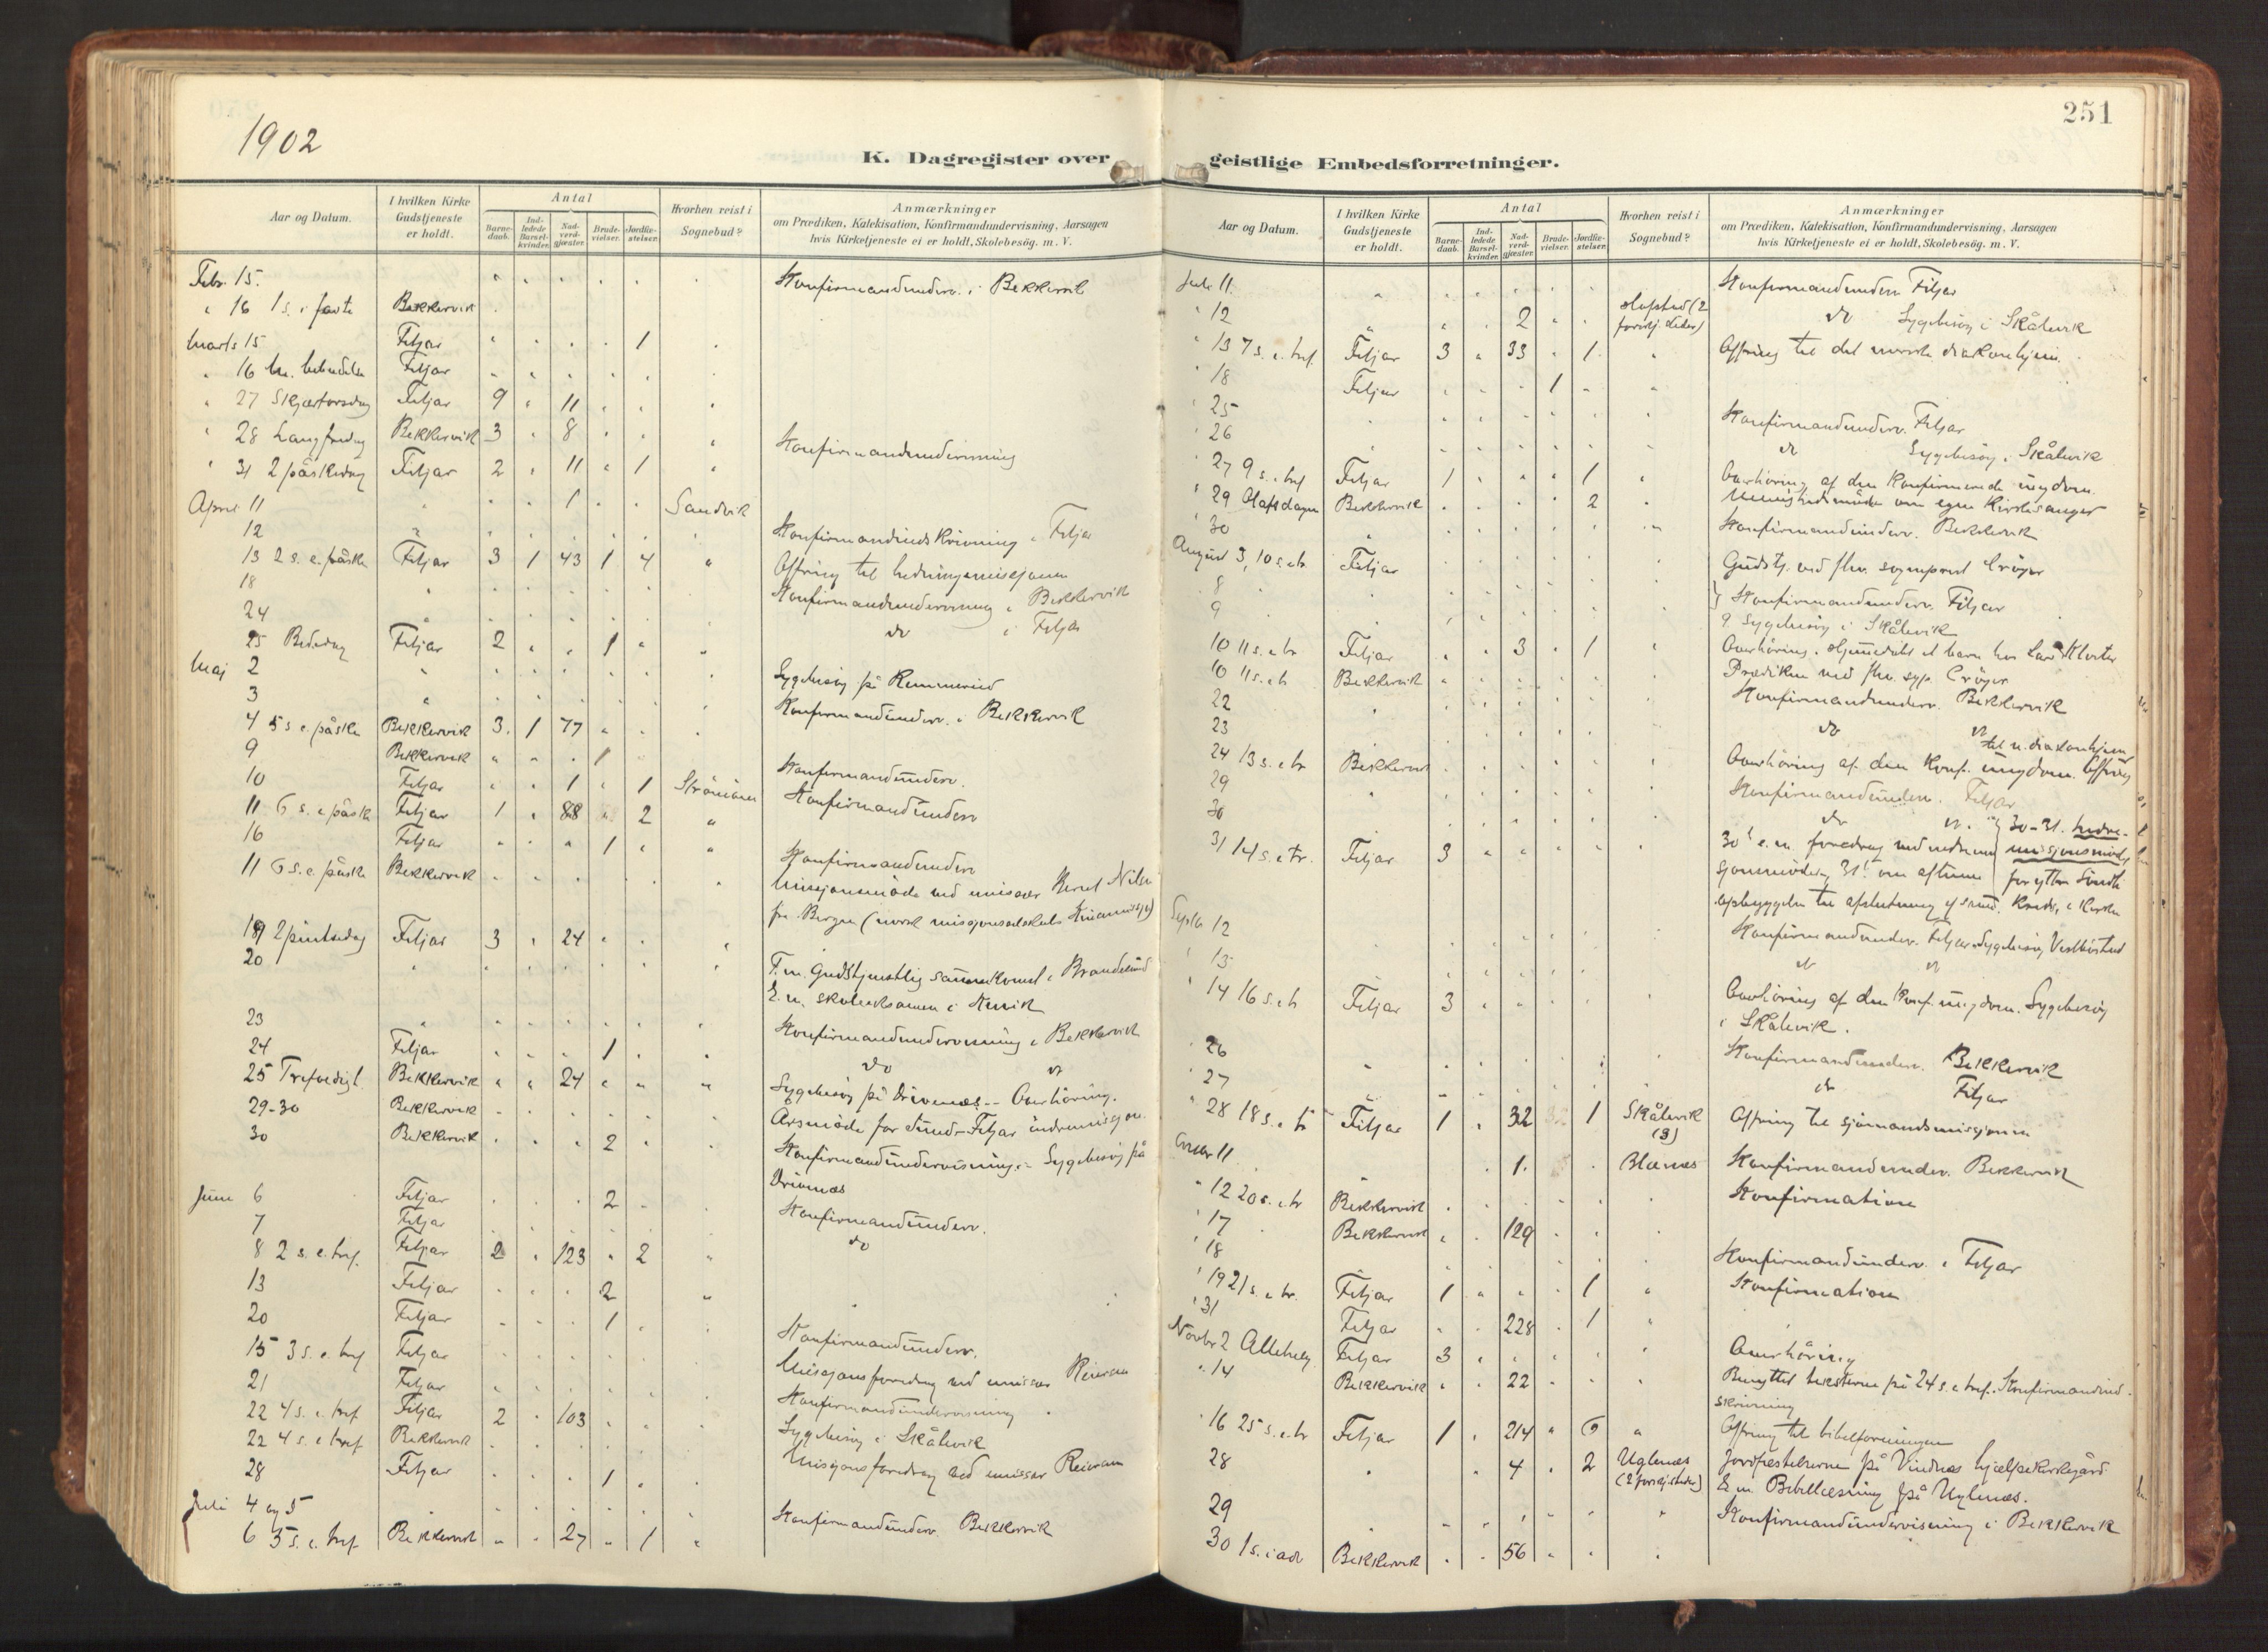 1902
251
K. Dagregister over geistlige Embedsforretninger.
Aar og Datum. I hvilken Kirke Gudstjeneste er holdt. Antal Barnedaab. Indledede Barselkvinder. Nadverdgjæster. Brudevielser. Jordfæstelser. Hvorhen reist i Sognebud? Anmærkninger om Prædiken, Katekisation, Konfirmandundervisning, Aarsagen hvis Kirketjeneste ei er holdt, Skolebesög. m. V.
Febr. 15. Konfirmandunderv. i Bekkervik
" 16 1 s. i faste Bekkervik
Marts 15 Fitjar 1
" 16 M. bebudelse Fitjar
" 27 Skjærtorsdag Fitjar 9 " 11
" 28 Langfredag Bekkervik 3 " 8
" 31 2 påskedag Fitjar 2 " 11 " 1 Konfirmandundervisning
April 11 1 Sandvik
12 Konfirmandindskrivning i Fitjar
13 2 s. e. påske Fitjar 3 1 43 1 4 Offring til hedningemissjonen
18 Konfirmandundervisning i Bekkervik
24 do i Fitjar
25 Bededag Fitjar 2 " " 1
Maj 2 Sygebesög på Rimmereid
3 Konfirmandunderv. i Bekkervik
4 5 s. e. påske Bekkervik 3 1 77
9 Bekkervik 1
10 Fitjar 1 " 1 Konfirmandunderv.
11 6 s. e. påske Fitjar 1 " 88 " 2 Konfirmandunderv
16 Fitjar 1 Konfirmandunderv
11 6 s. e. påske Bekkervik Missjonsmöde ved missær Bernt Nilsen
fra Bergen (norsk missjonsselskabs
19 2 pintsedag Fitjar 3 " 24
20 F.m. Gudstjenstlig sammenkomst i Brandesund
E. m. skoleeksamen i
23 Konfirmandundervisning i Bekkervik
24 Fitjar 1 do
25 Trefoldigh. Bekkervik " " 24 Sygebesög på Drivenæs -- Overhöring.
29-30 Bekkervik Årsmöde for Sönd-Fitjar indremissjon
30 Bekkervik 2 Konfirmandundervisning. Sygebesög på
Drivenæs
Juni 6 Fitjar 2 Konfirmandunderv.
7 Fitjar do
8 2 s. e. tref. Fitjar 2 " 123 " 2
13 Fitjar 2
20 Fitjar 1
15 3 s. e. tref Fitjar Konfirmandunderv.
21 Fitjar Missjonsforedrag ved missær Reieram
22 4 s. e. tref Fitjar 2 " 103 Konfirmandundervisning
22 4 s. e. tref Bekkervik Sygebesög i Skålevik
28 Fitjar 1 Missjonsforedrag ved missær Reieram
Juli 4 og 5 Konfirmandunderv. Bekkervik
6 5 s. e. tref. Bekkervik " " 27 " 1
Aar og Datum. I hvilken Kirke Gudstjeneste er holdt. Antal Barnedaab. Indledede Barselkvinder. Nadverdgjæster. Brudevielser. Jordfæstelser. Hvorhen reist i Sognebud? Anmærkninger om Prædiken, Katekisation, Konfirmandundervisning, Aarsagen hvis Kirketjeneste ei er holdt, Skolebesög. m. V.
Juli 11. Konfirmandunderv Fitjar
" 12 2 (2 forskj. steder) do Sygebesög i Skålevik
" 13 7 s. e. tref. Fitjar 3 " 33 " 1 Offring til det norske diakonhjem
" 18 Fitjar 1
" 25 Konfirmandunderv. Fitjar
" 26 do Sygebesög i Skålevik
" 27 9 s. e. tref Fitjar 1 " " " 1 Overhöring af den konfirmerede ungdom.
" 29 Olafsdagen Bekkervik 2 Menighedsmöde om egen kirkesanger
30 Konfirmandunderv. Bekkervik
August 3, 10 s. e. tr Fitjar Gudstj. ved fhv. sogneprest Cröger
8 Konfirmandunderv. Fitjar
9 9 Sygebesög i Skålevik
10 11 s. e. tr Fitjar " " 3 " 1 Overhöring. Hjemmedöbt et barn hos Lars Kloster
10 11 s. e. tr Bekkervik Prædiken ved fhv. sgp. Cröger
22 Konfirmandunderv. Bekkervik
23 do do
24 13 s. e. tr Bekkervik Overhöring af den konf. ungdom. Offring til n. diakonhjem
29 Konfirmandunderv. Fitjar
30 do do. 30-31. indre-
31 14 s. e. tr. Fitjar 3 30t e. m. foredrag ved indremis missjonsmöde
sjonsmöde 31t om aftenen for ytre Söndh.
opbyggelse til afslutning kreds, i kirken
Septbr 12 Konfirmandunderv. Fitjar. Sygebesög Vestböstad
" 13 do do
" 14 16 s. e. tr Fitjar 3 Overhöring af den konf. ungdom. Sygebesög
i Skålevik.
" 26 Konfirmandunderv. Bekkervik
" 27 do Fitjar
" 28 18 s. e. tr Fitjar 1 " 32 1 Skålevik (3) Offring til sjömandsmissjonen
11 1 Blænes Konfirmandunderv. Bekkervik
" 12 20 s. e. tr Bekkervik Konfirmation
" 17 Bekkervik " " 129
" 18 Konfirmandunderv. i Fitjar
" 19 21 s. e. tr. Fitjar 1 " " " 1 Konfirmation
" 31 Fitjar 228 " 1
Novbr 2 Allehelg. Fitjar 3 Overhöring
" 14 Bekkervik " " 22 Benyttet teksterne på 24 s. e. tref. Konfirmandind-
skrivning
" 16 25 s. e. tr Fitjar 1 " 214 " 6 Offring til bibelforeningen
28 4 " 2 Uglenæs (2 forskj. steder) Jordfæstelserne på Vindnæs hjælpekirkegård
E. m. Bibellæsning på Uglenæs.
29 Konfirmandundervisning i Bekkervik
30 1 s. i adv Bekkervik " " 56